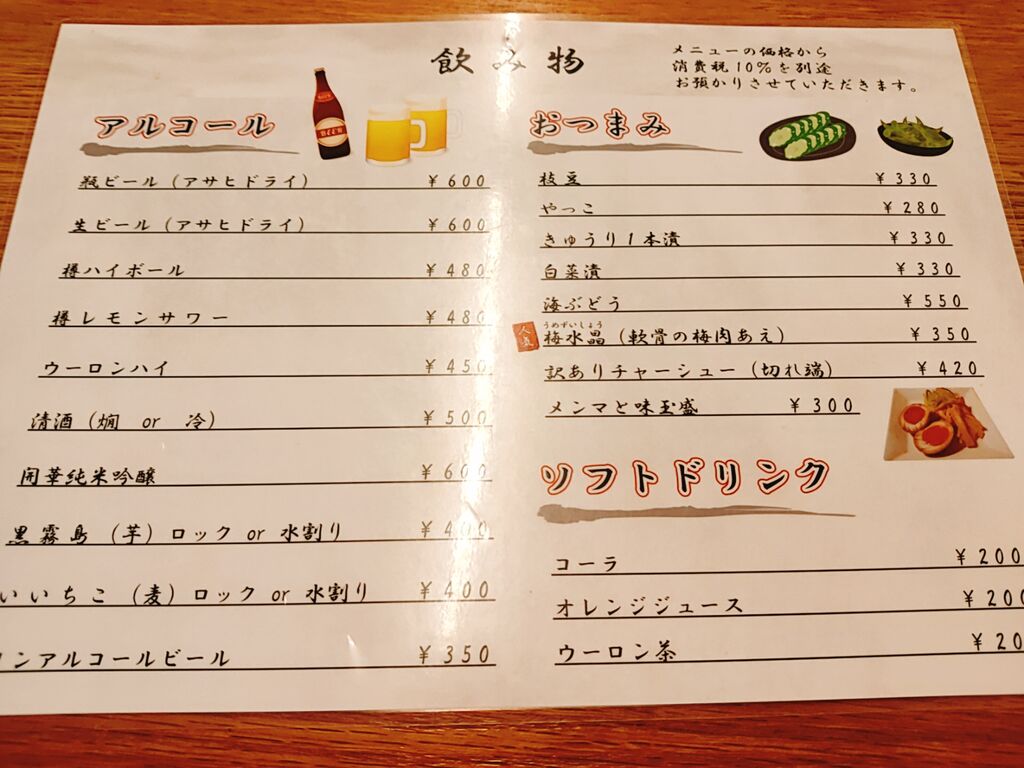 飲み物
メニューの価格から
消費税10%を別途
お預かりさせていただきます。
アルコール
BEER
瓶ビール（アサヒドライ） ￥600
生ビール（アサヒドライ） ￥600
樽ハイボール ￥480
樽レモンサワー ￥480
ウーロンハイ ￥450
清酒（燗 or 冷） ￥500
開華純米吟醸 ￥600
黒霧島（芋）ロック or 水割り ￥400
いいちこ（麦）ロック or 水割り ￥400
ンアルコールビール ￥350
おつまみ
枝豆 ￥330
やっこ ￥280
きゅうり1本漬 ￥330
白菜漬 ￥330
海ぶどう ￥550
人気
うめずいしょう
梅水晶（軟骨の梅肉あえ） ￥350
訳ありチャーシュー（切れ端） ￥420
メンマと味玉盛 ￥300
ソフトドリンク
コーラ ￥200
オレンジジュース ￥200
ウーロン茶 ￥20